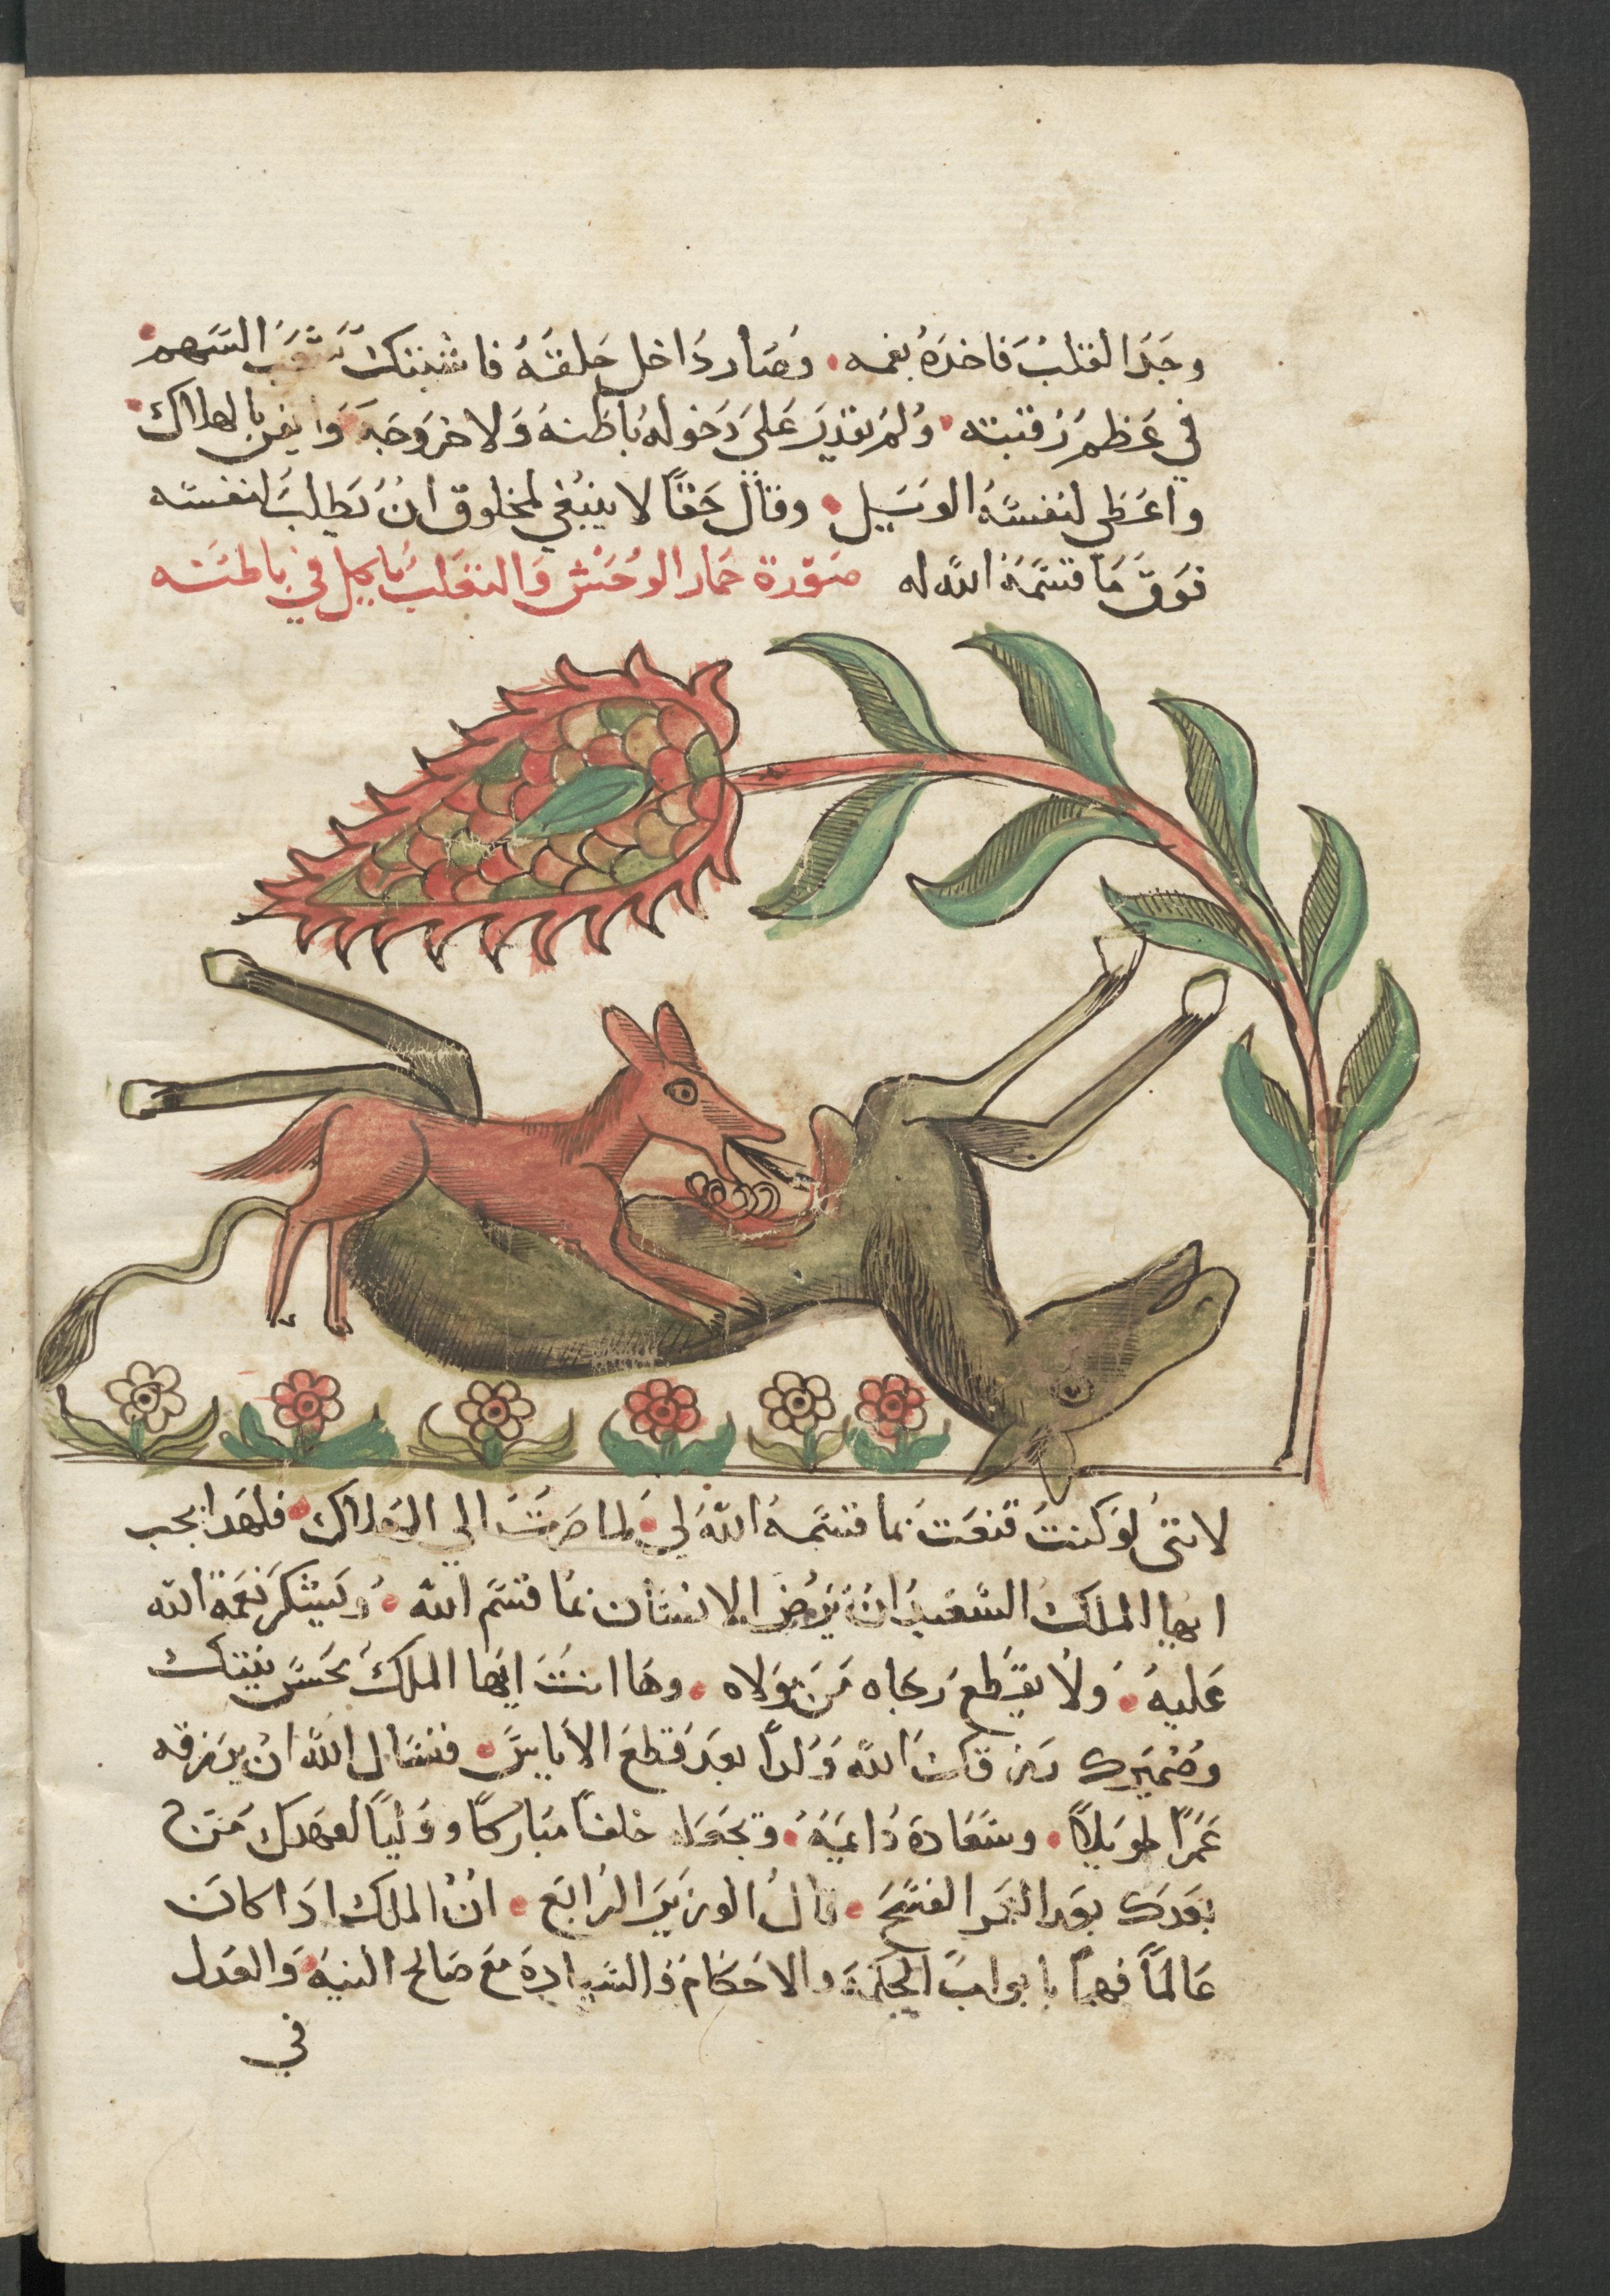 وجَدَ القلبَ فاخدَهُ بفمه • وَصَار دَاخل حَلقهُ فاشتبَكتْ شعَبَ السَهم
في عَظمِ رَقبته • وَلمْ يقدِرَ عَلىَ دَخوله بَاطنهُ وَلا خرَوجَهِ وَايقن بالهلاك
واعَطى لنفسَهُ الوَيَيل • وقالَ حَقاً لا ينبَغي لمخلوق انْ يَطلبَ لنفسَه
فوَقَ مَا قسَمَهُ اللَه له صَوَرة حمَار الوَحَش وَالثعَلبُ يَاكل في باطنَه
لاننى لوَ كنتُ قنعَتَ بمَا قسَمهُ اللَه لي • لما صَرتُ الي الهَلاك • فلهَدا يجب
ايهَا الملكَ السَعَيدُ انْ يَرَضىَ الانسَان بمَا قسَم اللَه • وَيَشكرَ نعَمَة اللَه
عَليهَ • وَلا يقطعَ رَجاه مَن مَوَلاه • وهَا انتَ ايهَا الملكَ بحَسَن نيتكَ
وضَميَركَ رَزقكَ اللَه وَلداً بعدَ قطعَ الاَيايسَ • فنسَال اللَه انْ يرَزقه
عَمَراً طوَيلاً • وسَعَادة دَايمَة • وَيجَعَله خلفاً مبَاركاً وَوَلياً لعهَدكَ مَن
بعَدكَ بعَد العَمر الفسَح • قالَ الوزيَر الرَابعَ • انْ الملكَ ادَا كانَ
عَالماً فهماً بابوابَ الحِكمَة والاحَكامَ وَالسَيادة معَ صَالح النيهَ وَالعَدل
في